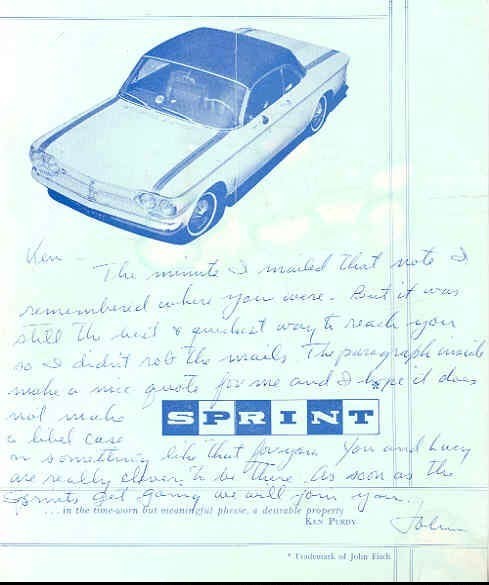 Ken –
The minute I mailed that note I
remembered where you were. But it was
still the best & quickest way to reach you
so I didn't rob the mails. The paragraph inside
make a nice quote for me and I hope it does
not make
SPRINT
a libel case
or something like that for you. You and Lucy
are really clever to be there. As soon as the
Sprints get going we will join you.
...in the time-worn but meaningful phrase, a desirable property
KEN PURDY
John
* Trademark of John Fitch